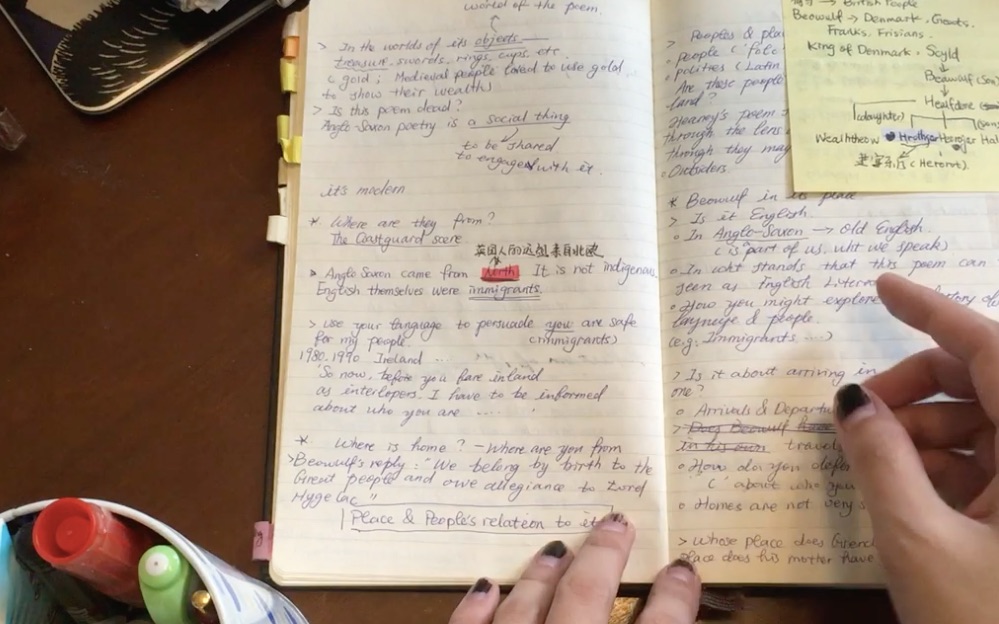 world of the poem.
> In the worlds of its objects —
treasure, swords, rings, cups, etc
( gold ; Medieval people loved to use gold
to show their wealth)
> Is this poem dead?
Anglo-Saxon poetry is a social thing
to be shared
to engaged with it.
it's modern
* Where are they from?
The Coastguard scene
英国人的远祖来自北欧
Anglo Saxon came from North It is not indigenous
English themselves were immigrants.
> use your language to persuade you are safe
for my people. (immigrants)
1980.1990 Ireland ...
"So now, before you fare inland
as interlopers. I have to be informed
about who you are ..... "
* Where is home? - Where are you from
> Beowulf's reply : "We belong by birth to the
Great people and owe allegiance to Lord
Hygelac "
Place & People's relation to it
> Peoples & pla
people ( 'folc
polities ( Latin
Are these people
land?
Heaney's poem
through the lens
through they may
Outsiders.
* Beowulf in its place
> Is it English.
o In Anglo-Saxon → Old English.
( is part of us. wht we speak)
o In wht stands that this poem can
seen as English Litera
o How you might explore history of
language & people.
(e.g. Immigrants ...)
> Is it about arriving in
one?
o Arrivals & Departu
> Does Beowulf have
in his own travel
o How do you defen
( about who you
o Homes are not very s
> whose place does Grend
place does his mother have
→ British People
Beowulf → Denmark. Geats.
Franks. Frisians.
King of Denmark. Scyld
Beowulf (son
Healfdene
(daughter)
Wealhtheow Hrothgar Heroger Hal
(Heorot).